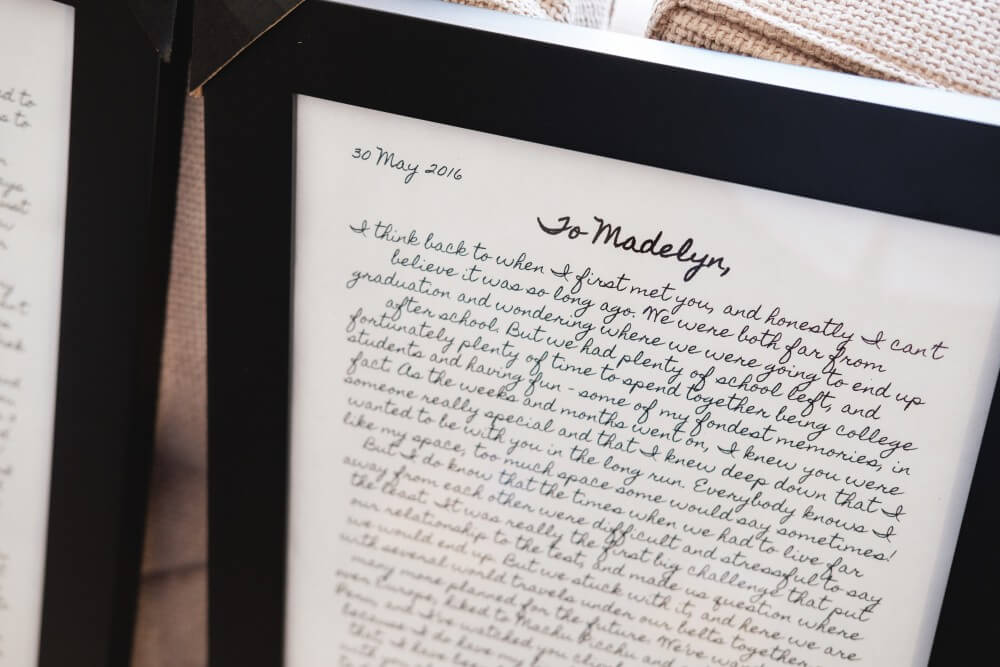 30 May 2016
To Madelyn,
I think back to when I first met you, and honestly I can't
believe it was so long ago. We were both far from
graduation and wondering where we were going to end up
after school. But we had plenty of school left, and
fortunately plenty of time to spend together being college
students and having fun - some of my fondest memories, in
fact. As the weeks and months went on, I knew you were
someone really special and that I knew deep down that I
wanted to be with you in the long run. Everybody knows I
like my space, too much space some would say sometimes!
But I do know that the times when we had to live far
away from each other were difficult and stressful to say
the least. It was really the first big challenge that put
our relationship to the test, and made us question where
we would end up. But we stuck with it, and here we are
with several world travels under our belts together
many more planned for the future. We've
over Europe, hiked to Machu Picchu and
Peru, and I've watched you
because I do have my
that, I have